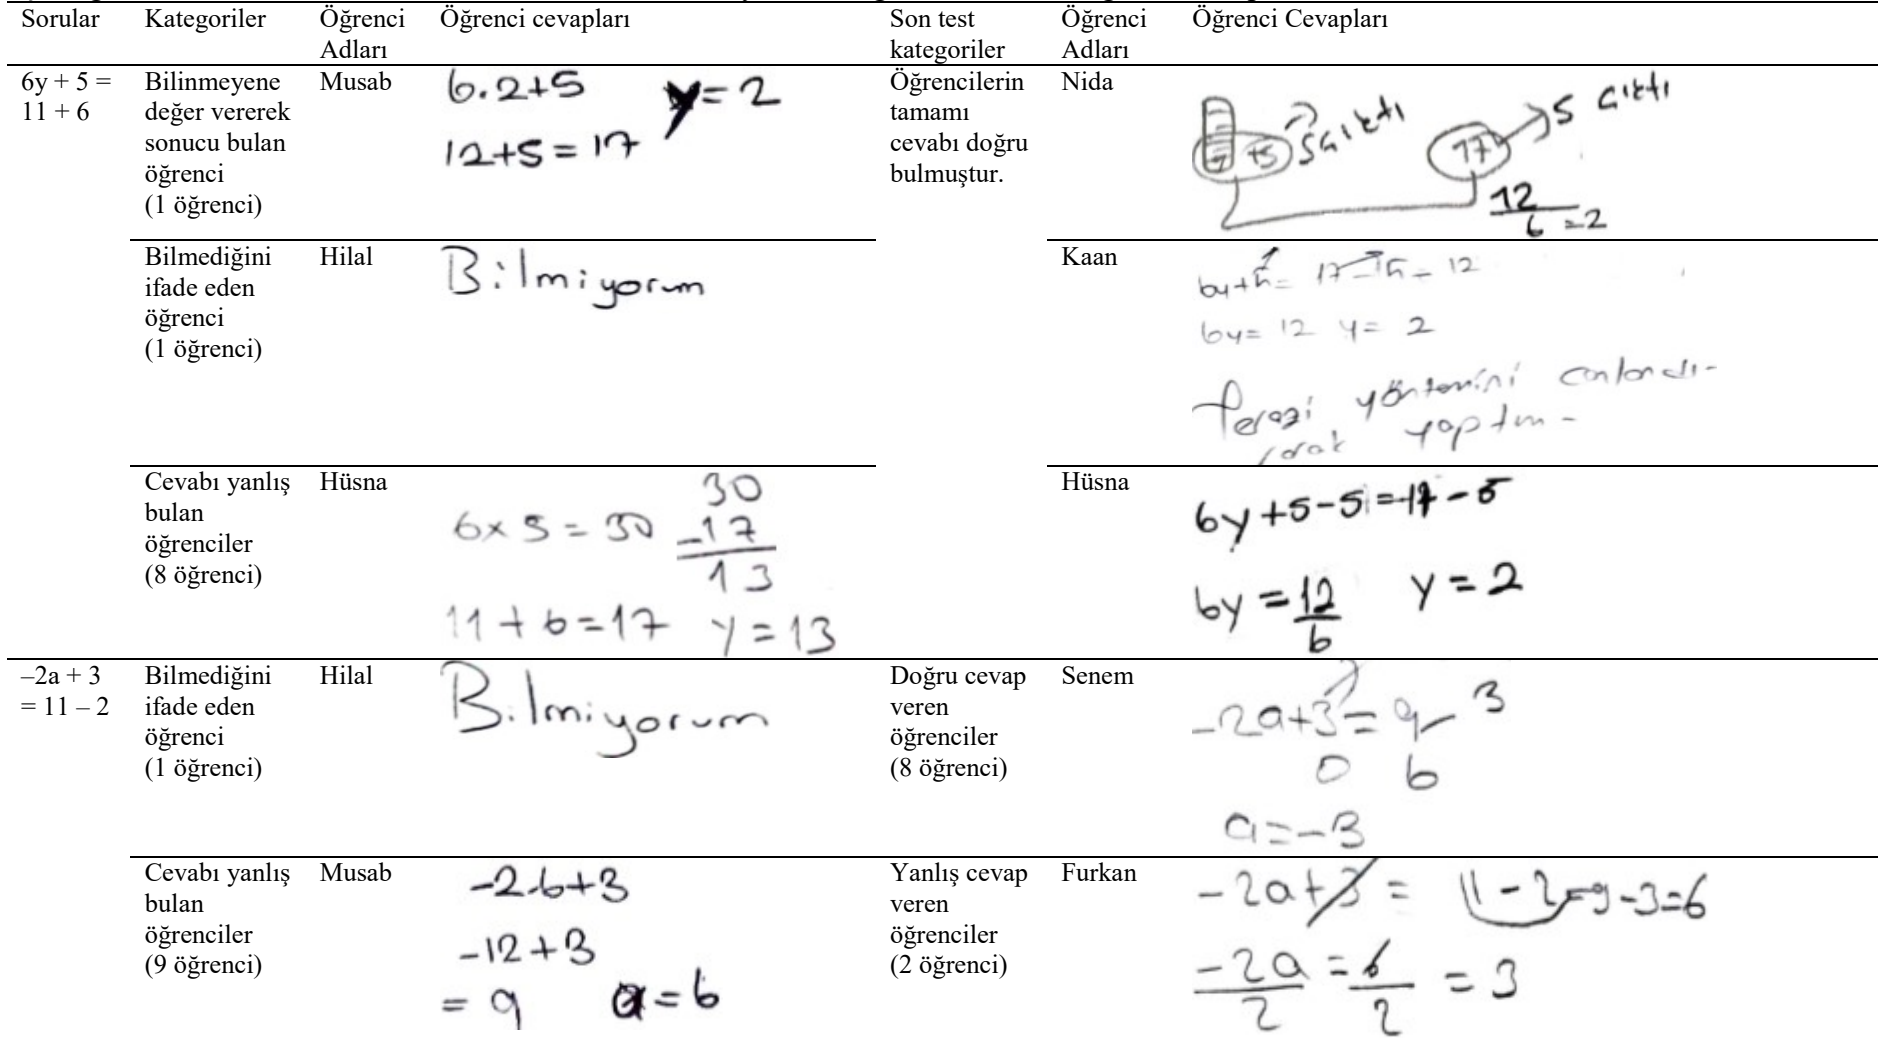 Sorular Kategoriler Öğrenci Adları Öğrenci cevapları Son test kategoriler Öğrenci Adları Öğrenci Cevapları
6y + 5 =
11 + 6
Bilinmeyene
değer vererek
sonucu bulan
öğrenci
(1 öğrenci)
Musab
6.2+5 y=2
12+5=17
Öğrencilerin
tamamı
cevabı doğru
bulmuştur.
Nida
+5 5 çıktı 17 5 çıktı
12
6 =2
Bilmediğini
ifade eden
öğrenci
(1 öğrenci)
Hilal
Bilmiyorum
Kaan
6y+5= 17-5= 12
6y= 12 y= 2
Terazi yöntemini canlandı-
rarak yaptım-
Cevabı yanlış
bulan
öğrenciler
(8 öğrenci)
Hüsna
6x5=30 30
-17
13
11+6=17 y=13
Hüsna
6y+5-5=17-5
6y=12 y=2
6
–2a + 3
= 11 – 2
Bilmediğini
ifade eden
öğrenci
(1 öğrenci)
Hilal
Bilmiyorum
Doğru cevap
veren
öğrenciler
(8 öğrenci)
Senem
-2a+3=9-3
0 6
a=-3
Cevabı yanlış
bulan
öğrenciler
(9 öğrenci)
Musab
-2.6+3
-12+3
= 9 a=6
Yanlış cevap
veren
öğrenciler
(2 öğrenci)
Furkan
-2a+3= 11-2=9-3=6
-2a = 6 = 3
2 2